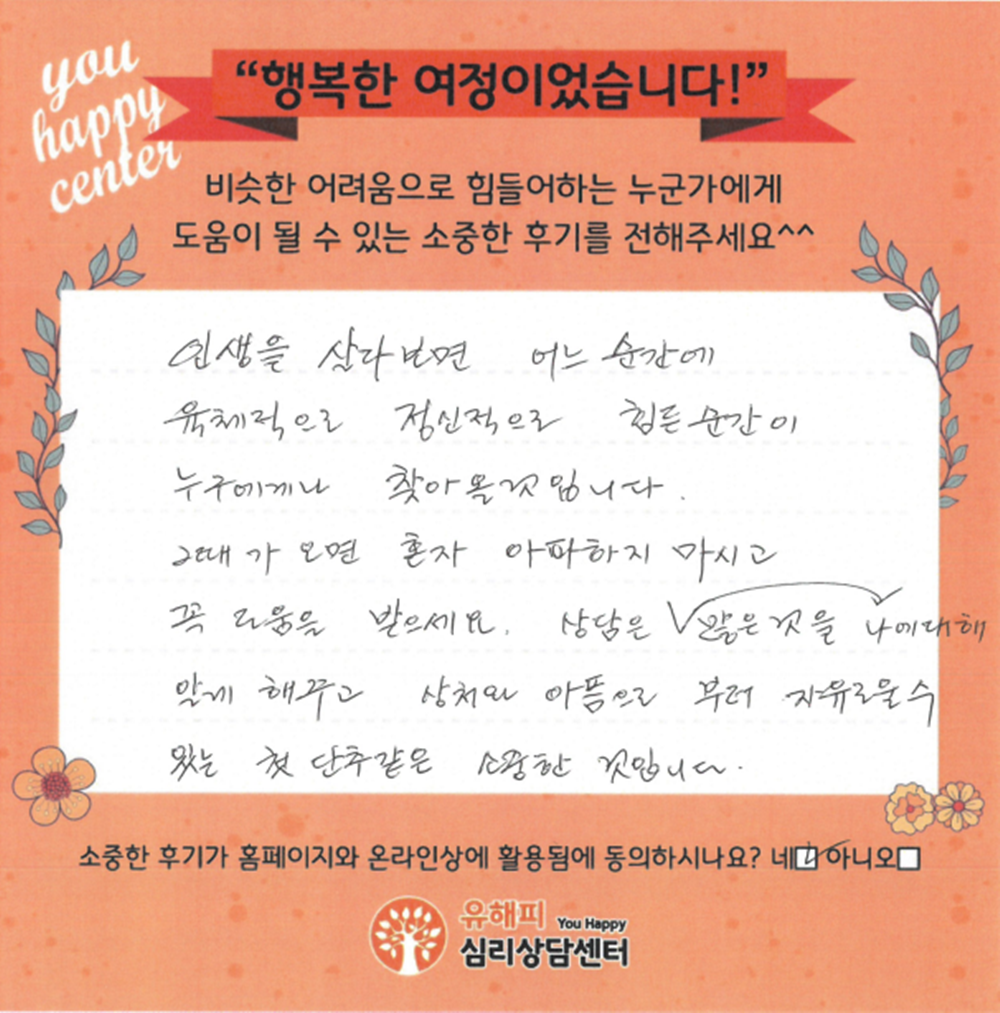 you
happy
center
“행복한 여정이었습니다!”
비슷한 어려움으로 힘들어하는 누군가에게
도움이 될 수 있는 소중한 후기를 전해주세요^^
인생을 살다보면 어느 순간에
육체적으로 정신적으로 힘든 순간이
누구에게나 찾아올것입니다.
그때가 오면 혼자 아파하지 마시고
꼭 도움을 받으세요. 상담은 많은것을 나에대해
알게 해주고 상처와 아픔으로 부터 자유로울수
있는 첫 단추같은 소중한 것입니다.
소중한 후기가 홈페이지와 온라인상에 활용됨에 동의하시나요? 네 아니오
유해피 You Happy
심리상담센터